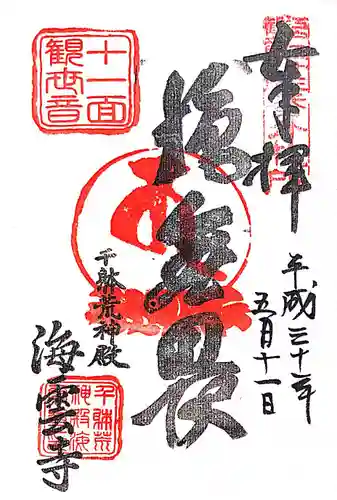 奉拝
十一面
観世音
施無畏
平成三十年
五月十一日
千躰荒神殿
海雲寺
千躰荒
神殿海